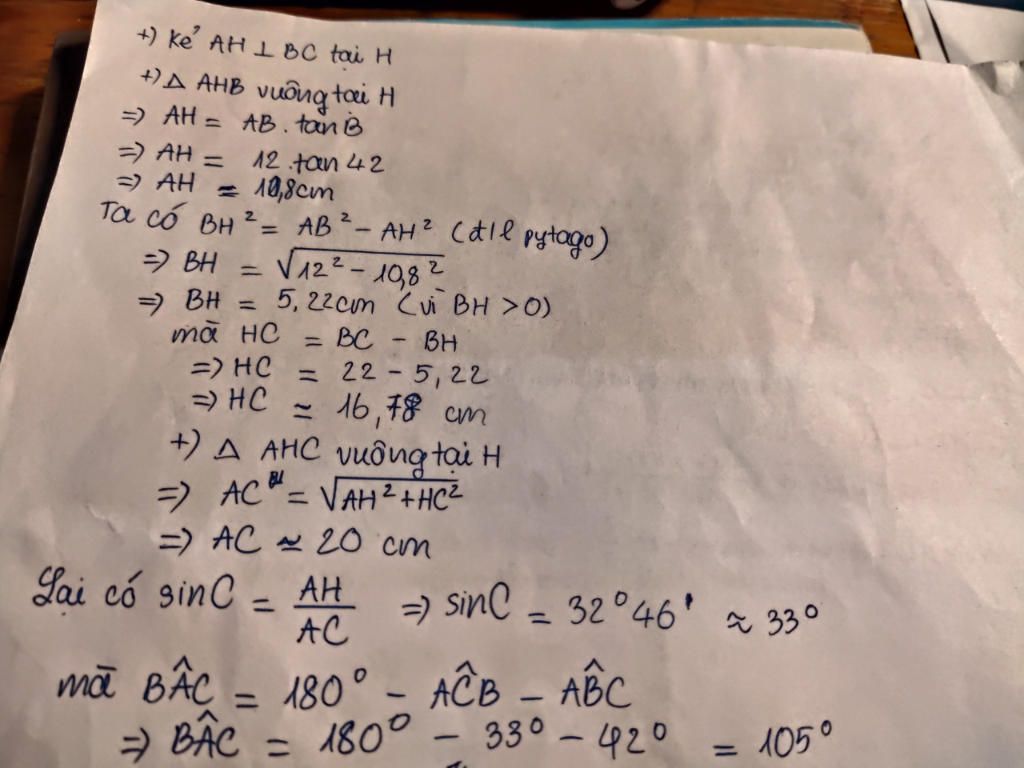 +) Kẻ AH ⊥ BC tại H
+) Δ AHB vuông tại H
=> AH = AB . tan B
=> AH = 12 . tan 42
=> AH ≃ 10,8cm
Ta có BH² = AB² - AH² (đ/l pytago)
=> BH = √12² - 10,8²
=> BH = 5,22cm (vì BH > 0)
mà HC = BC - BH
=> HC = 22 - 5,22
=> HC ≃ 16,78 cm
+) Δ AHC vuông tại H
=> AC = √AH² + HC²
=> AC ≃ 20 cm
Lại có sinC = AH/AC => sinC = 32°46' ≈ 33°
mà BÂC = 180° - AĈB - AB̂C
=> BÂC = 180° - 33° - 42° = 105°